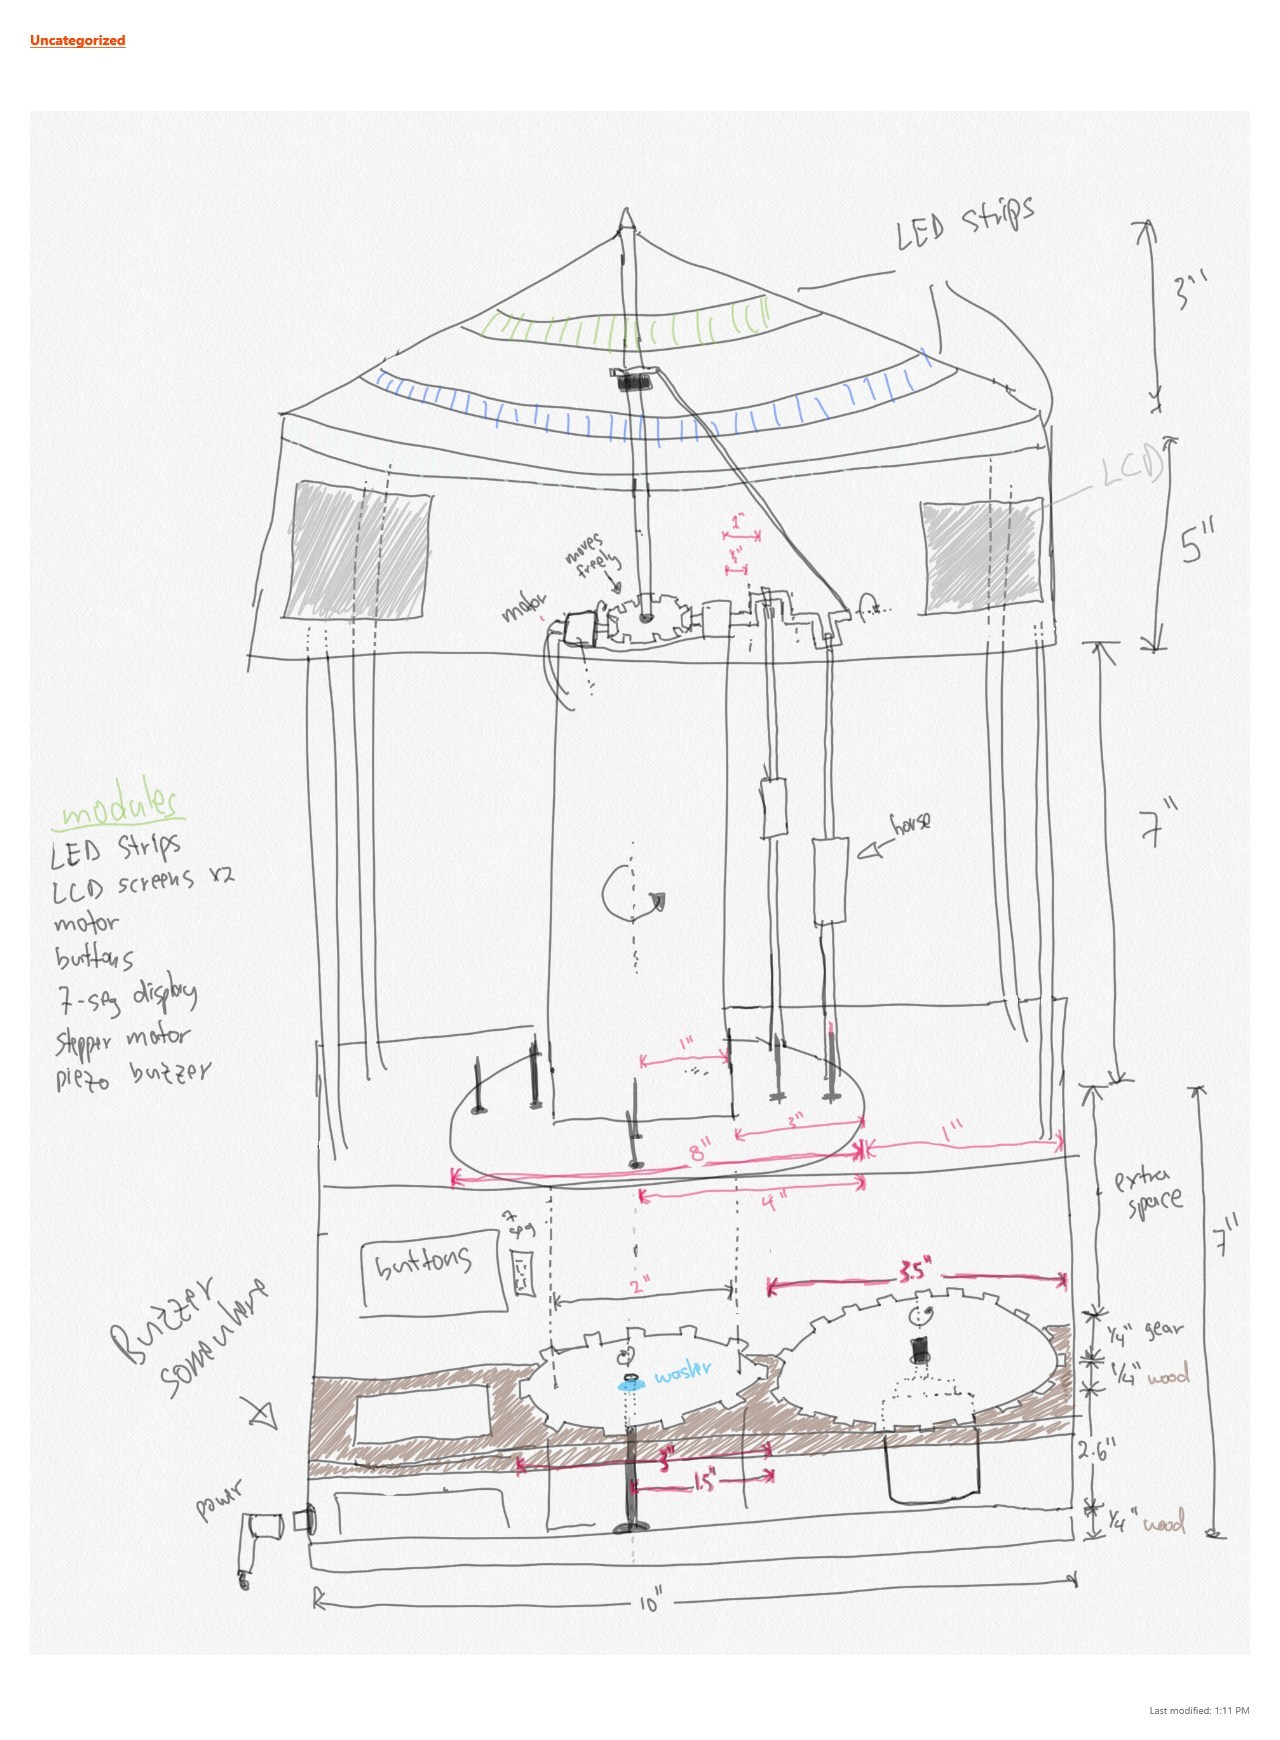 Uncategorized
LED strips
3"
LCD
1"
5"
moves
freely
motor
7"
horse
modules
LED Strips
LCD screens x2
motor
buttons
7-seg display
stepper motor
piezo buzzer
1"
3"
1"
8"
4"
extra
space
7"
7
seg
buttons
3.5"
2"
Buzzer
somewhere
1/4" gear
washer
1/4" wood
2.6"
3"
1.5"
power
1/4" wood
10"
Last modified: 1:11 PM